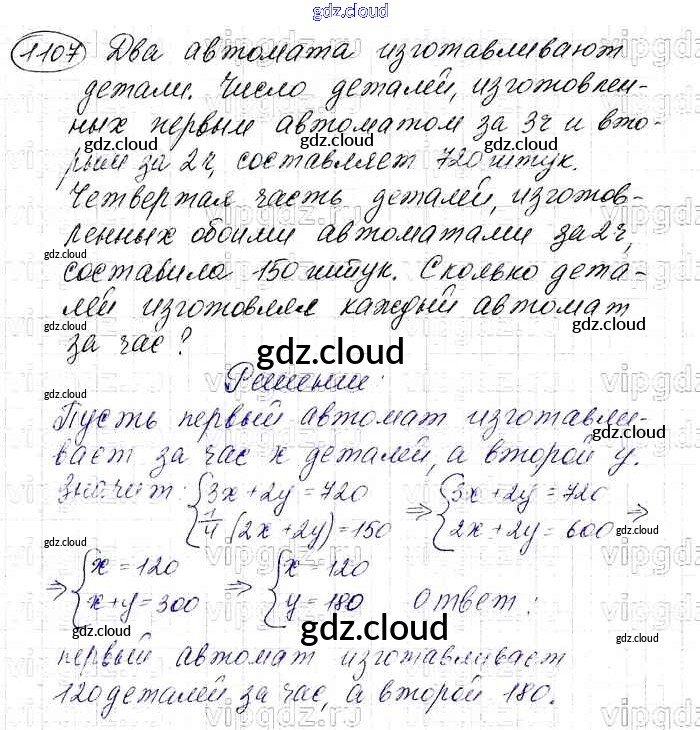 gdz.cloud
1107 Два автомата изготавливают
gdz.cloud
детали. Число деталей, изготовлен-
ных первым автоматом за 3ч и вто-
рым за 2ч, составляет 720 штук.
gdz.cloud
Четвертая часть деталей, изготов-
gdz.cloud
ленных обоими автоматами за 2ч,
составила 150 штук. Сколько дета-
лей изготовлял каждый автомат
gdz.cloud
за час?
gdz.cloud
Решение:
Пусть первый автомат изготавли-
gdz.cloud
вает за час x деталей, а второй y.
gdz.cloud
Значит: { 3x + 2y = 720 ⇒ { 3x + 2y = 720
1/4 (2x + 2y) = 150 { 2x + 2y = 600 ⇒
gdz.cloud
⇒ { x = 120 ⇒ { x = 120
x + y = 300 { y = 180 Ответ:
gdz.cloud
gdz.cloud
gdz.cloud
первый автомат изготавливает
120 деталей за час, а второй 180.
gdz.cloud